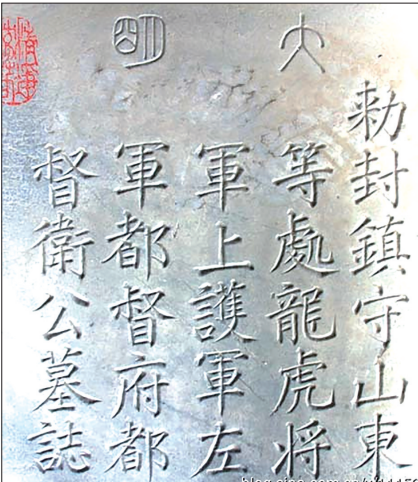 大 明
勅封鎮守山東
等處龍虎将
軍上護軍左
軍都督府都
督衛公墓誌